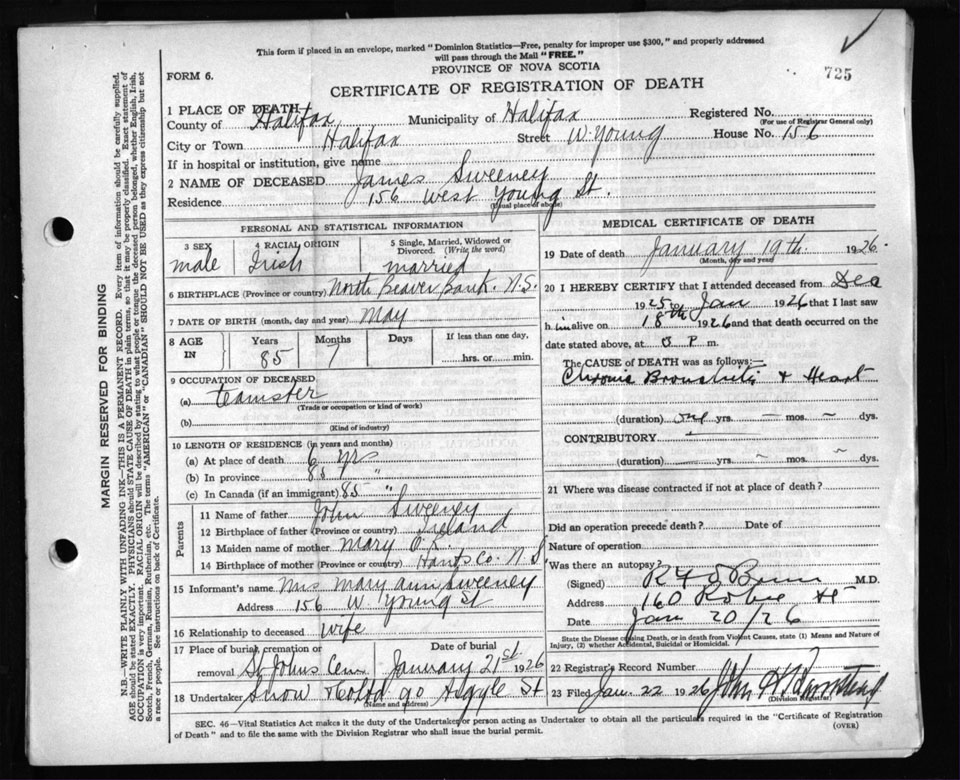 This form if placed in an envelope, marked "Dominion Statistics—Free, penalty for improper use $300," and properly addressed
will pass through the Mail "FREE."
PROVINCE OF NOVA SCOTIA
725
FORM 6.
CERTIFICATE OF REGISTRATION OF DEATH
1 PLACE OF DEATH
County of Halifax, Municipality of Halifax Registered No.
(For use of Registrar General only)
City or Town Halifax Street W. Young House No. 156
If in hospital or institution, give name
2 NAME OF DECEASED James Sweeney
Residence 156 West Young St.
(Usual place of abode)
PERSONAL AND STATISTICAL INFORMATION
3 SEX 4 RACIAL ORIGIN 5 Single, Married, Widowed or
Divorced. (Write the word)
male Irish married
6 BIRTHPLACE (Province or country) North Beaver Bank. N.S.
7 DATE OF BIRTH (month, day and year) May
8 AGE IN Years Months Days If less than one day,
85 7 hrs. or min.
9 OCCUPATION OF DECEASED
(a) teamster
(Trade or occupation or kind of work)
(b)
(Kind of industry)
10 LENGTH OF RESIDENCE (in years and months)
(a) At place of death 6 yrs
(b) In province 85 "
(c) In Canada (if an immigrant) 85 "
Parents
11 Name of father John Sweeney
12 Birthplace of father (Province or country) Ireland
13 Maiden name of mother Mary
14 Birthplace of mother (Province or country) Hants Co. N S
15 Informant's name Mrs Mary Ann Sweeney
Address 156 W. Young St
16 Relationship to deceased wife
17 Place of burial, cremation or Date of burial
removal St Johns Cem January 21st 1926
18 Undertaker Snow & Co Ltd 90 Argyle St
(Name and address)
MEDICAL CERTIFICATE OF DEATH
19 Date of death January 19th. 1926.
(Month, day and year)
20 I HEREBY CERTIFY that I attended deceased from Dec
1925 Jan 1926 that I last saw
h im alive on 18th 1926 and that death occurred on the
date stated above, at P m.
The CAUSE OF DEATH was as follows:—
Chronic Bronchitis & Heart
(duration) one yrs. — mos. — dys.
CONTRIBUTORY —
(duration) yrs. mos. dys.
21 Where was disease contracted if not at place of death?
Did an operation precede death? Date of
Nature of operation
Was there an autopsy?
(Signed) M.D.
Address 160 Robie St
Date Jan 20/26
State the Disease causing Death, or in death from Violent Causes, state (1) Means and Nature of
Injury, (2) whether Accidental, Suicidal or Homicidal.
22 Registrar's Record Number
23 Filed Jan. 22 1926 John
(Division Registrar)
SEC. 46—Vital Statistics Act makes it the duty of the Undertaker or person acting as Undertaker to obtain all the particulars required in the "Certificate of Registration
of Death" and to file the same with the Division Registrar who shall issue the burial permit. (OVER)
MARGIN RESERVED FOR BINDING
N.B.—WRITE PLAINLY WITH UNFADING INK—THIS IS A PERMANENT RECORD. Every item of information should be carefully supplied.
AGE should be stated EXACTLY. PHYSICIANS should STATE CAUSE OF DEATH in plain terms, so that it may be properly classified. Exact statement of
OCCUPATION is very important. RACIAL ORIGIN will be described by stating to what people or tongue the deceased person belonged, whether English, Irish,
Scotch, French, German, Russian, Ruthenian, etc. The terms "AMERICAN" or "CANADIAN" SHOULD NOT BE USED as they express citizenship but not
a race or people. See instructions on back of Certificate.